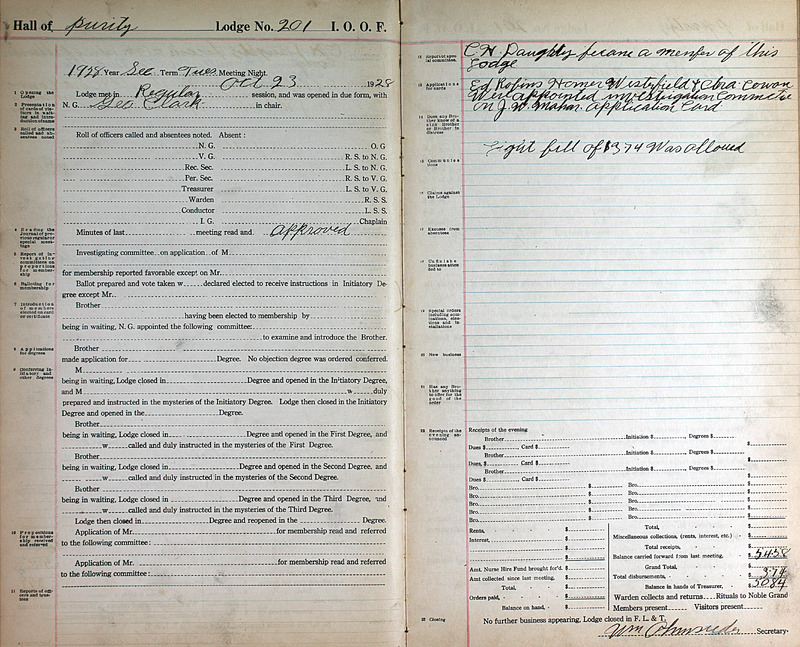 Hall of Purity Lodge No. 201 I. O. O. F.
1928 Year Sec Term Tues Meeting Night.
Oct 23 1928
1 Opening the Lodge
Lodge met in Regular session, and was opened in due form, with
N. G. Geo Clark in chair.
Roll of officers called and absentees noted. Absent:
3 Roll of officers called and absentees noted
N. G. O. G
V. G. R. S. to N. G.
Rec. Sec. L. S. to N. G.
Per. Sec. R. S. to V. G.
Treasurer L. S. to V. G.
Warden R. S. S.
Conductor L. S. S.
I. G. Chaplain
Minutes of last meeting read and approved
Investigating committee on application of M
for membership reported favorable except on Mr.
6 Balloting for membership
Ballot prepared and vote taken w declared elected to receive instructions in Initiatory De-
gree except Mr.
7 Introduction of members elected on card or certificate
Brother
having been elected to membership by
being in waiting, N. G. appointed the following committee:
to examine and introduce the Brother.
8 Applications for degrees
Brother
made application for Degree. No objection degree was ordered conferred.
9 Conferring Initiatory and other degrees
M
being in waiting, Lodge closed in Degree and opened in the Initiatory Degree,
and M w duly
prepared and instructed in the mysteries of the Initiatory Degree. Lodge then closed in the Initiatory
Degree and opened in the Degree.
Brother
being in waiting, Lodge closed in Degree and opened in the First Degree, and
w called and duly instructed in the mysteries of the First Degree.
Brother
being in waiting, Lodge closed in Degree and opened in the Second Degree, and
w called and duly instructed in the mysteries of the Second Degree.
Brother
being in waiting, Lodge closed in Degree and opened in the Third Degree, and
w called and duly instructed in the mysteries of the Third Degree.
Lodge then closed in Degree and reopened in the Degree.
10 Propositions for membership received and referred
Application of Mr. for membership read and referred
to the following committee:
Application of Mr. for membership read and referred
to the following committee:
11 Reports of officers and trustees
C. H. Daughty became a member of this
Lodge
13 Applications for cards
Ed Robins Homer Westefield & Cbra Cowan
Were appointed investigation Committe
on J. W. Mahan application Card
14 Does any Brother know of a sick Brother or Brother in distress
Light bill of $3.74 Was allowed
15 Communications
16 Claims against the Lodge
17 Excuses from absentees
Unfinished business attended to
19 Special orders including nominations, elections and installations
20 New business
21 Has any Brother anything to offer for the good of the order
22 Receipts of the evening announced
Receipts of the evening
Brother Initiation $ Degrees $
Dues $ Card $ $
Brother Initiation $ Degrees $
Dues, $ Card $ $
Brother Initiation $ Degrees $
Dues $ Card $ $
Bro. $ Bro. $
Bro. $ Bro. $
Bro. $ Bro. $
Bro. $ Bro. $
Rents, $ Total, $
Interest, $ Miscellaneous collections, (rents, interest, etc.) $
Total receipts, $
Balance carried forward from last meeting, $ 54.58
Amt. Nurse Hire Fund brought for'd. $ Grand Total, $
Amt collected since last meeting, $ Total disbursements, $ 3.74
Total, $ Balance in hands of Treasurer, $ 50.84
Orders paid, $ Warden collects and returns Rituals to Noble Grand
Balance on hand, $ Members present Visitors present
23 Closing
No further business appearing, Lodge closed in F. L. & T.
Secretary.